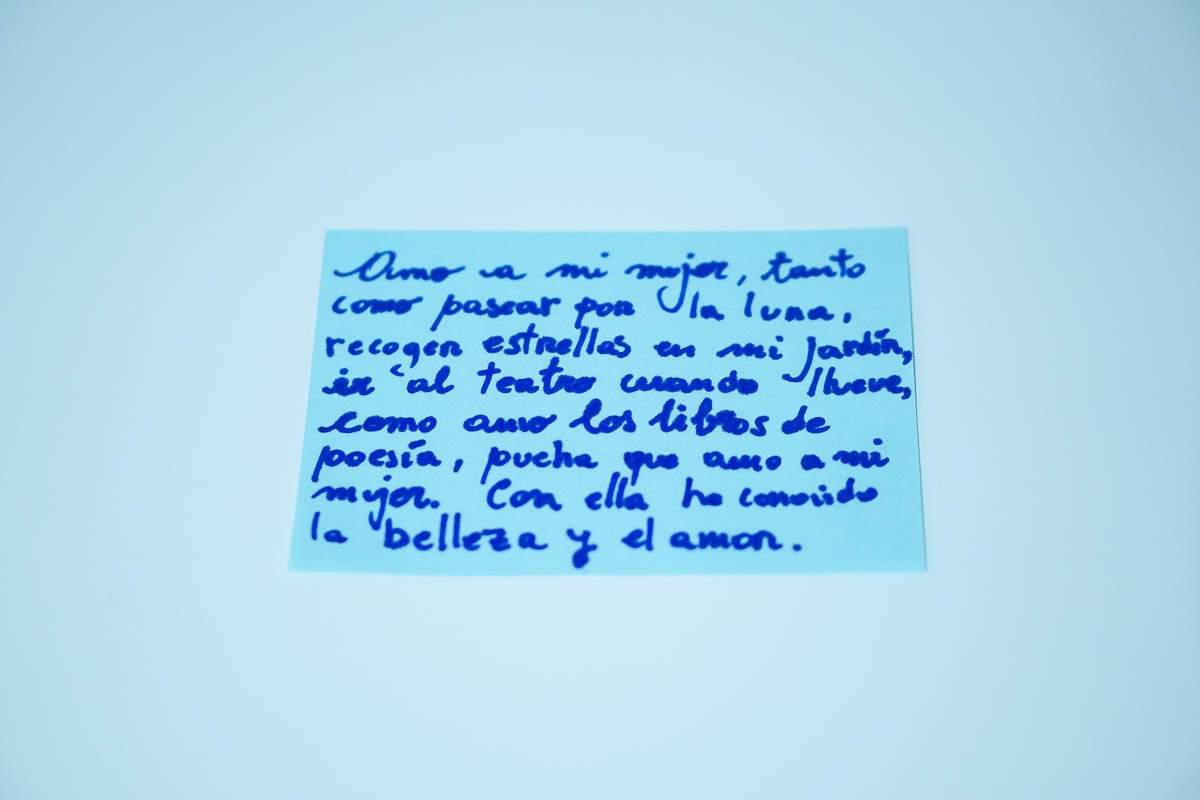 Amo a mi mujer, tanto
como pasear por la luna,
recoger estrellas en mi jardín,
ir al teatro cuando llueve,
como amo los libros de
poesía, pucha que amo a mi
mujer. Con ella he conocido
la belleza y el amor.